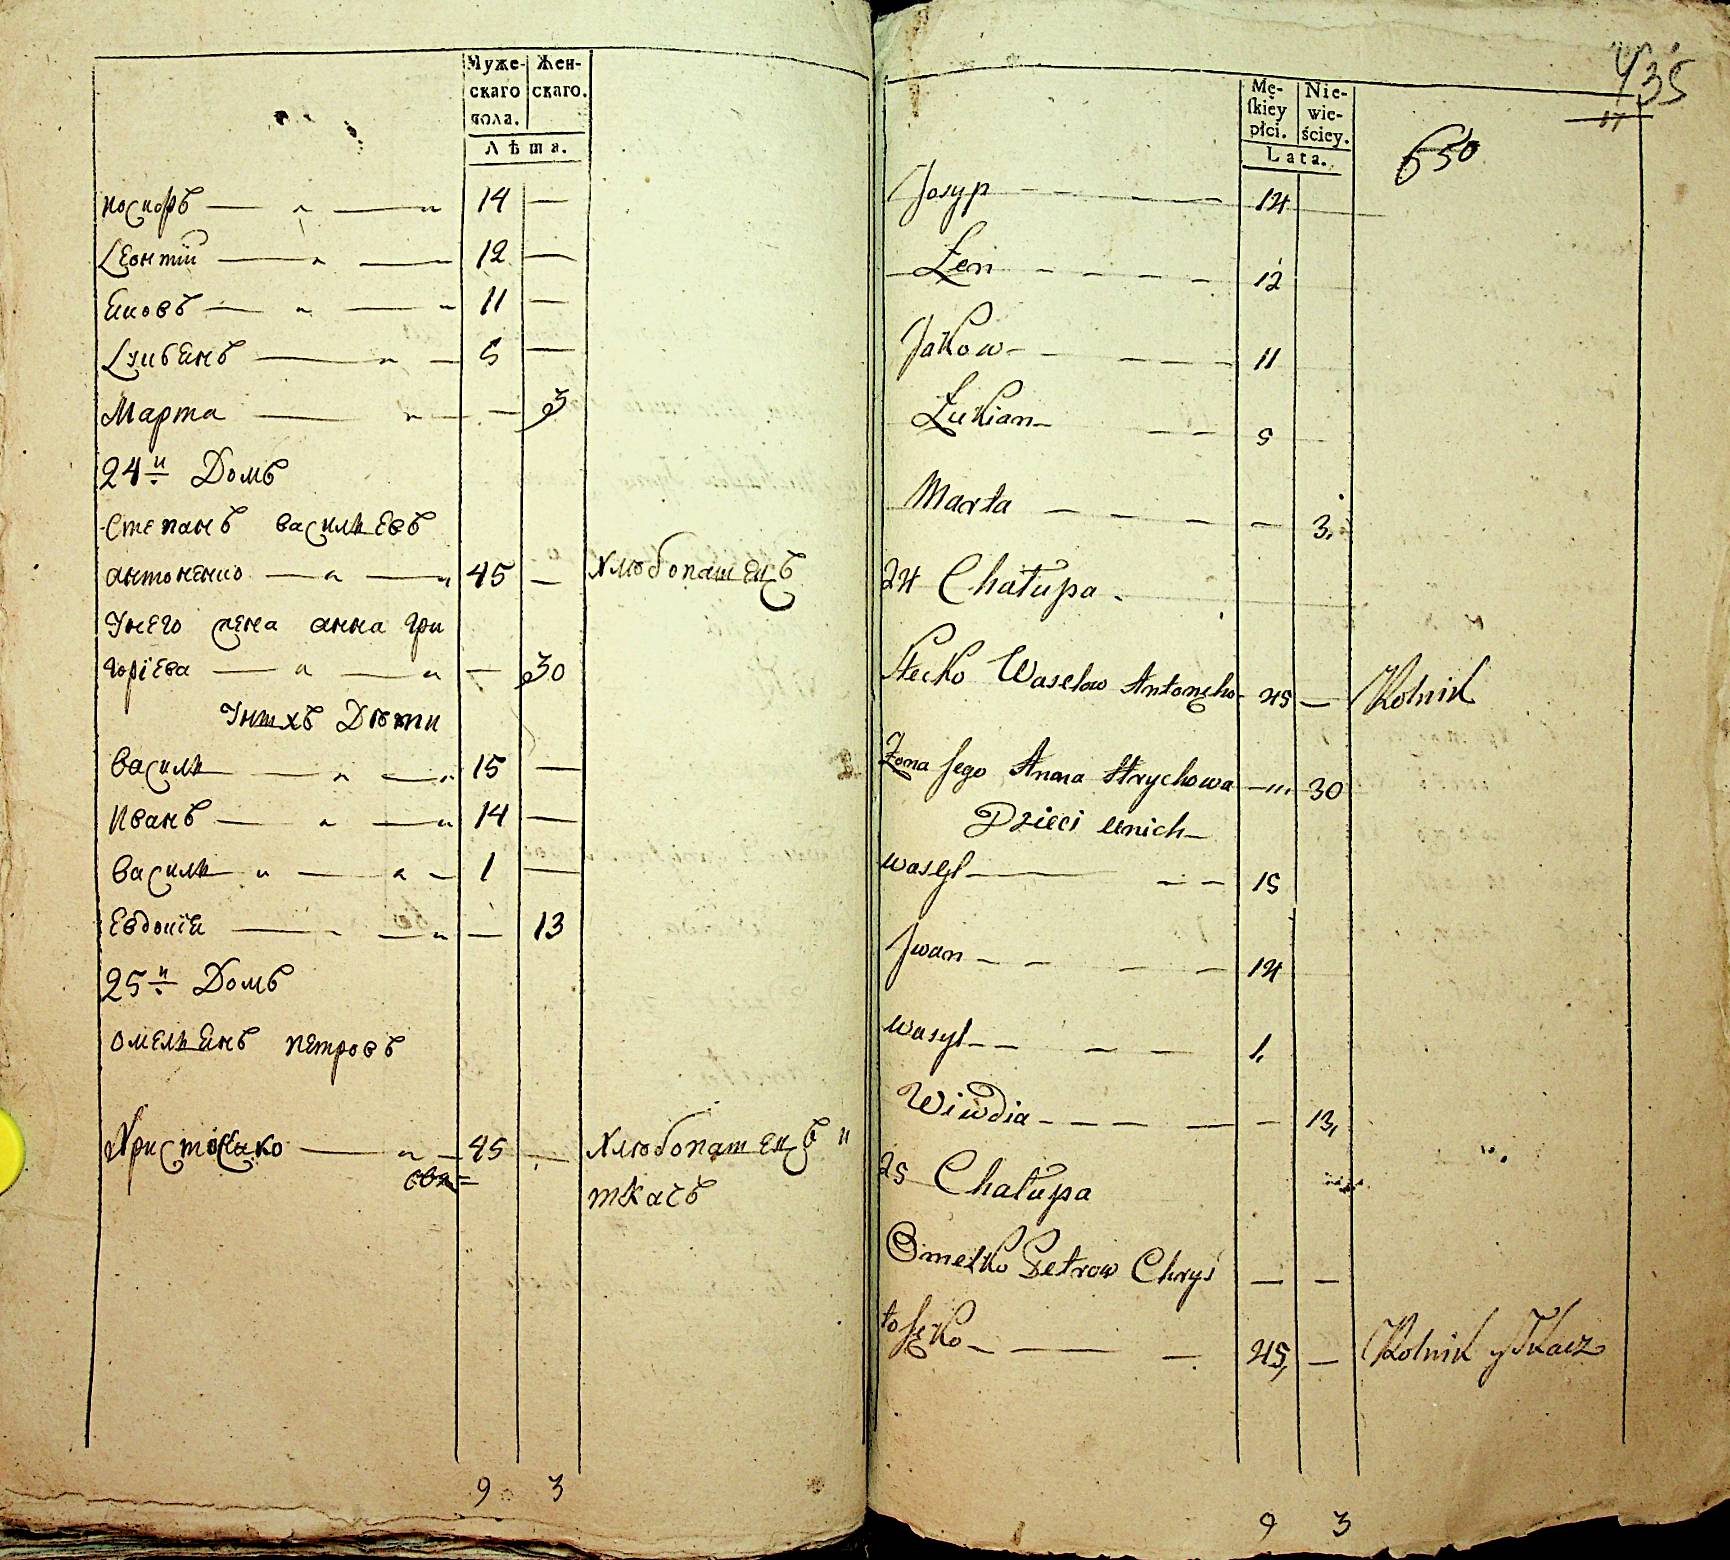 Муже- Жен-
скаго скаго.
пола.
Лѣта.
иосиѳъ 14 —
Леонтий 12 —
Яковъ 11 —
Лукьянъ 5 —
Марта — 3
24й Домъ
Степанъ васильевъ
антоненко 45 — хлѣбопашецъ
Унего жена анна гри
горіева — 30
Унихъ Дѣти
василь 15 —
Иванъ 14 —
василь 1 —
Евдокія — 13
25й Домъ
омельянъ петровъ
христосенко 45 — хлѣбопашецъ и
ткачъ
9 3
435
17
650
Mę- Nie-
skiey wie-
płci. ściey.
Lata.
Josyp 14
Łen 12
Jakow 11
Łukian 5
Marta — 3
24 Chałupa
Stecko Waselow Antonęko 45 — Rolnik
Żona Jego Anna Hrychowa — 30
Dzieci unich
wasyl 15
Jwan 14
wasyl 1
Wiwdia — 13
25 Chałupa
Omelko Petrow Chrys — —
tosęko 45 — Rolnik y Tkacz
9 3